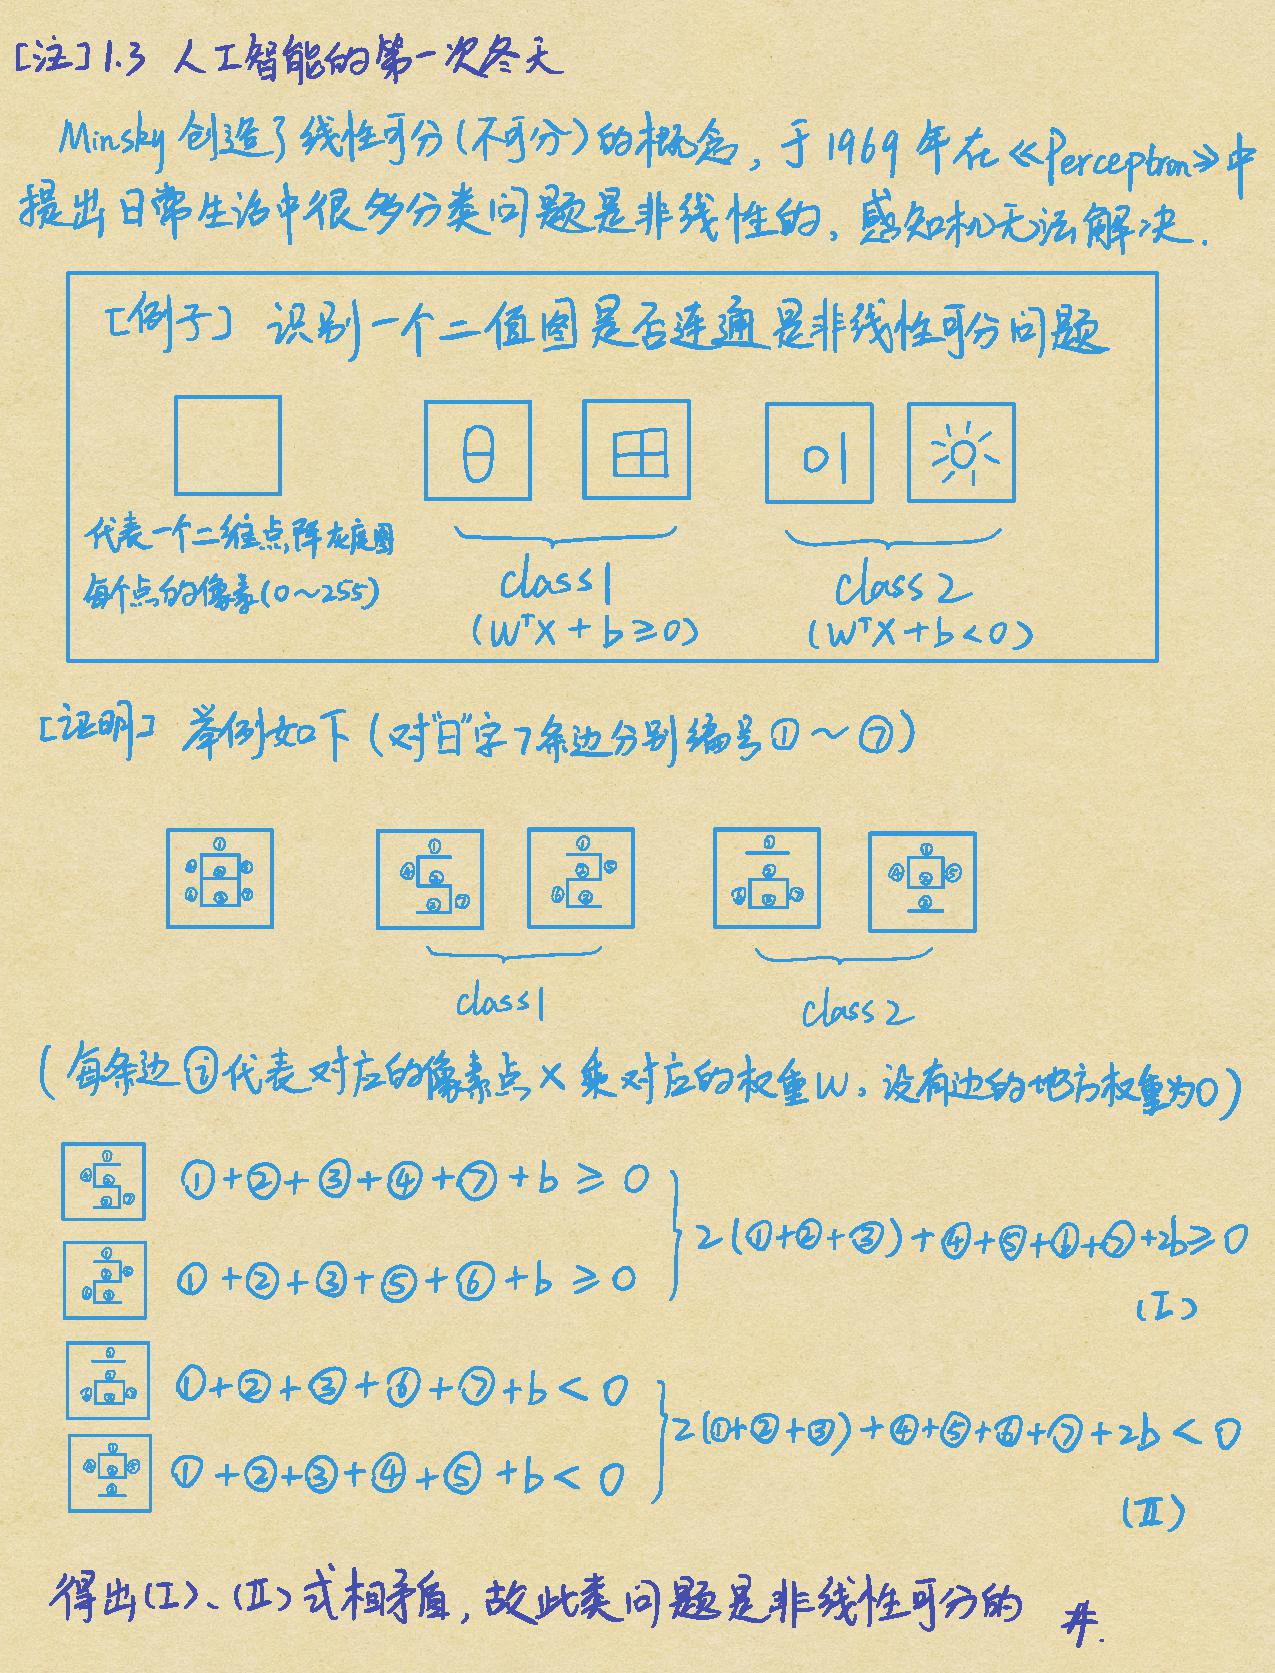 [注]1.3 人工智能的第一次冬天
Minsky创造了线性可分(不可分)的概念,于1969年在《Perceptron》中
提出日常生活中很多分类问题是非线性的,感知机无法解决.
[例子] 识别一个二值图是否连通是非线性可分问题
代表一个二维点阵灰度图
每个点的像素(0~255)
class1
(WᵀX+b≥0)
class2
(WᵀX+b<0)
[证明] 举例如下(对"日"字7条边分别编号①~⑦)
class1
class2
(每条边ⓘ代表对应的像素点X乘对应的权重W,没有边的地方权重为0)
①+②+③+④+⑦+b≥0
①+②+③+⑤+⑥+b≥0
2(①+②+③)+④+⑤+⑥+⑦+2b≥0
(I)
①+②+③+⑥+⑦+b<0
①+②+③+④+⑤+b<0
2(①+②+③)+④+⑤+⑥+⑦+2b<0
(II)
得出(I)、(II)式相矛盾,故此类问题是非线性可分的 #.